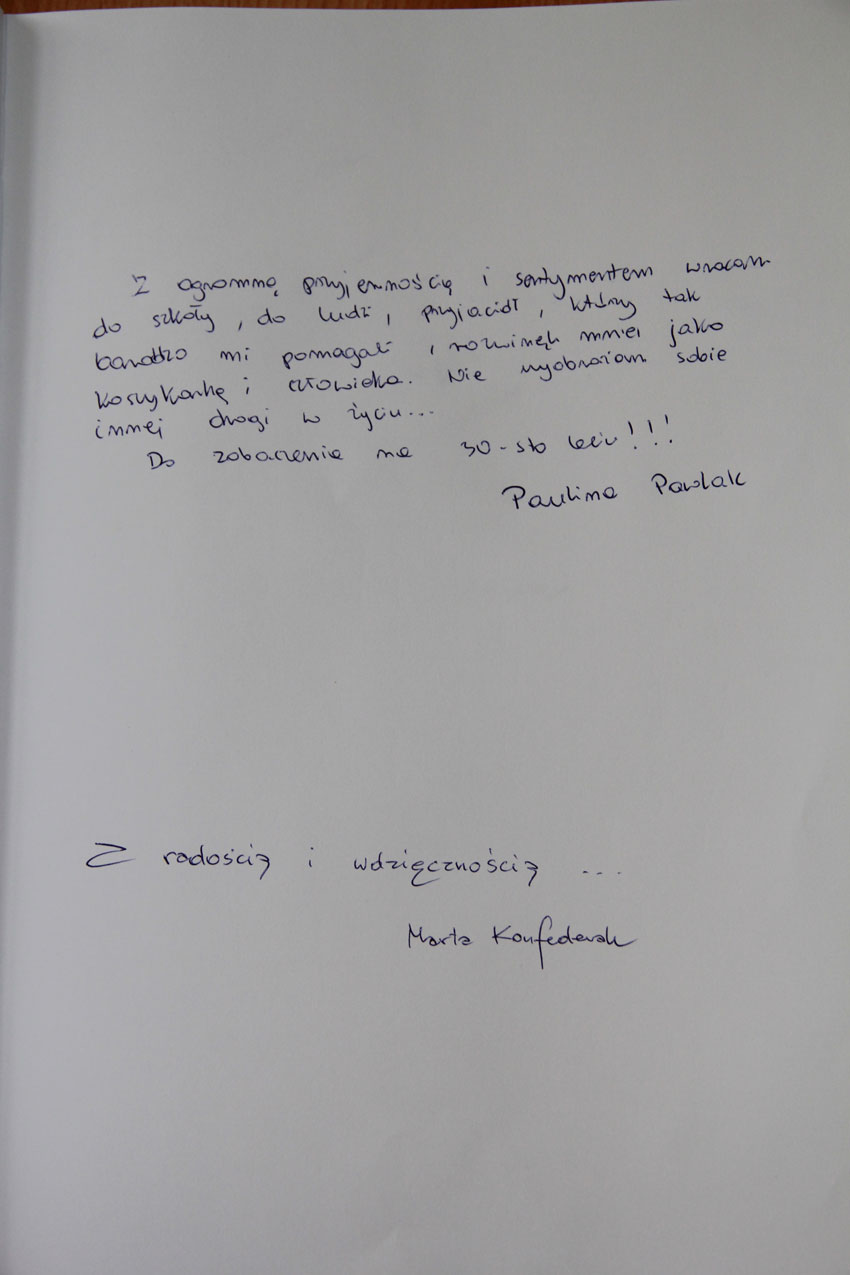 Z ogromną przyjemnością i sentymentem wracam
do szkoły, do ludzi, przyjaciół, którzy tak
bardzo mi pomagali, rozwinęli mnie jako
koszykarkę i człowieka. Nie wyobrażam sobie
innej drogi w życiu...
Do zobaczenia na 30-sto leciu!!!
Paulina Pawlak
Z radością i wdzięcznością ...
Marta Konfederak